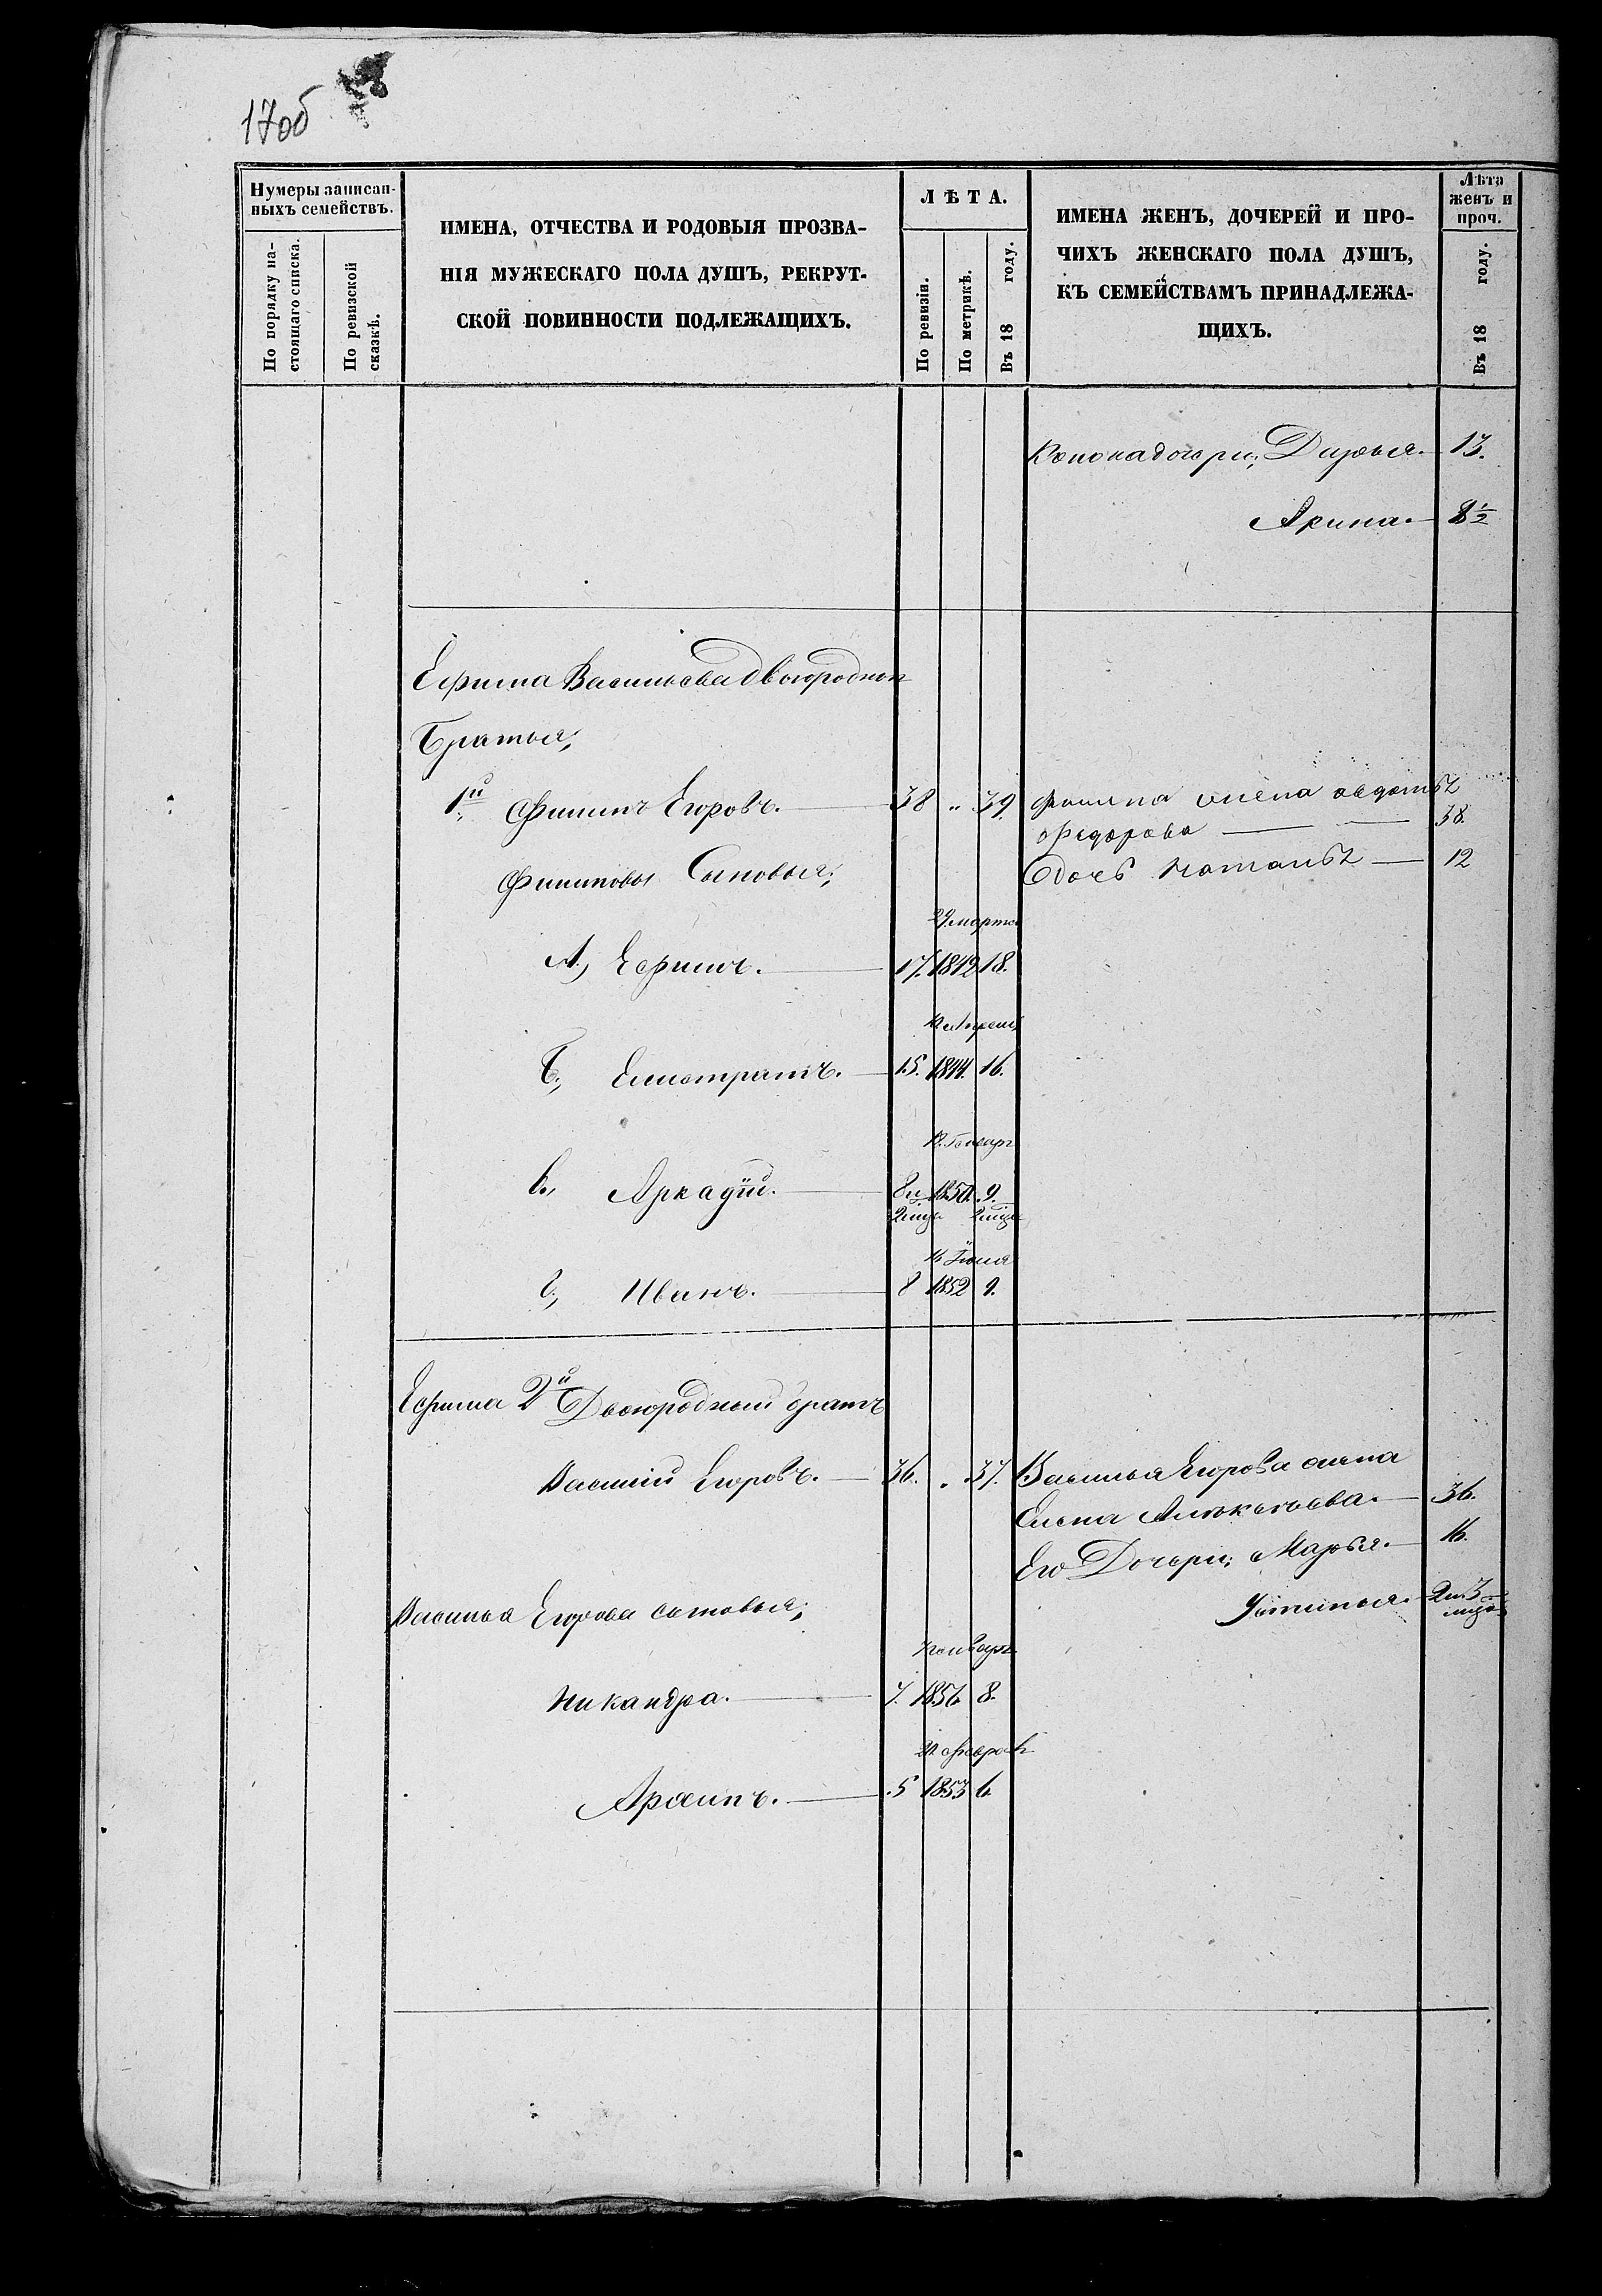 17об
Нумеры записан-
ныхъ семействъ.
По порядку на-
стоящаго списка.
По ревизской
сказкѣ.
ИМЕНА, ОТЧЕСТВА И РОДОВЫЯ ПРОЗВА-
НІЯ МУЖЕСКАГО ПОЛА ДУШЪ, РЕКРУТ-
СКОЙ ПОВИННОСТИ ПОДЛЕЖАЩИХЪ.
ЛѢТА.
По ревизіи.
По метрикѣ.
Въ 18 году.
ИМЕНА ЖЕНЪ, ДОЧЕРЕЙ И ПРО-
ЧИХЪ ЖЕНСКАГО ПОЛА ДУШЪ,
КЪ СЕМЕЙСТВАМЪ ПРИНАДЛЕЖА-
ЩИХЪ.
Лѣта
женъ и
проч.
Въ 18 году.
Конона дочери; Дарья. 13.
Арина. ½
Ефима Васильева двоюродной
Братья;
1й Филипъ Егоровъ. 38 " 39. Филипа жена авдотья
федорова 38.
Филиповы Сыновья; Едочь наталья 12
29 марта
А, Ефимъ. 17. 1842 18.
Апреля
Б, Елистратъ. 15. 1844. 16.
Генваря
В, Аркадiй. 1850. 9.
Iюля
Г, Иванъ. 8 1852 9.
Ефима 2й Двоюродный братъ
Василiй Егоровъ. 36. " 37. Василья Егорова жена
Елена 36.
Его Дочери; Марья. 16.
Василья Егорова сыновья; Устинья.
Никандра. 7. 8.
февраля
5 1853 6